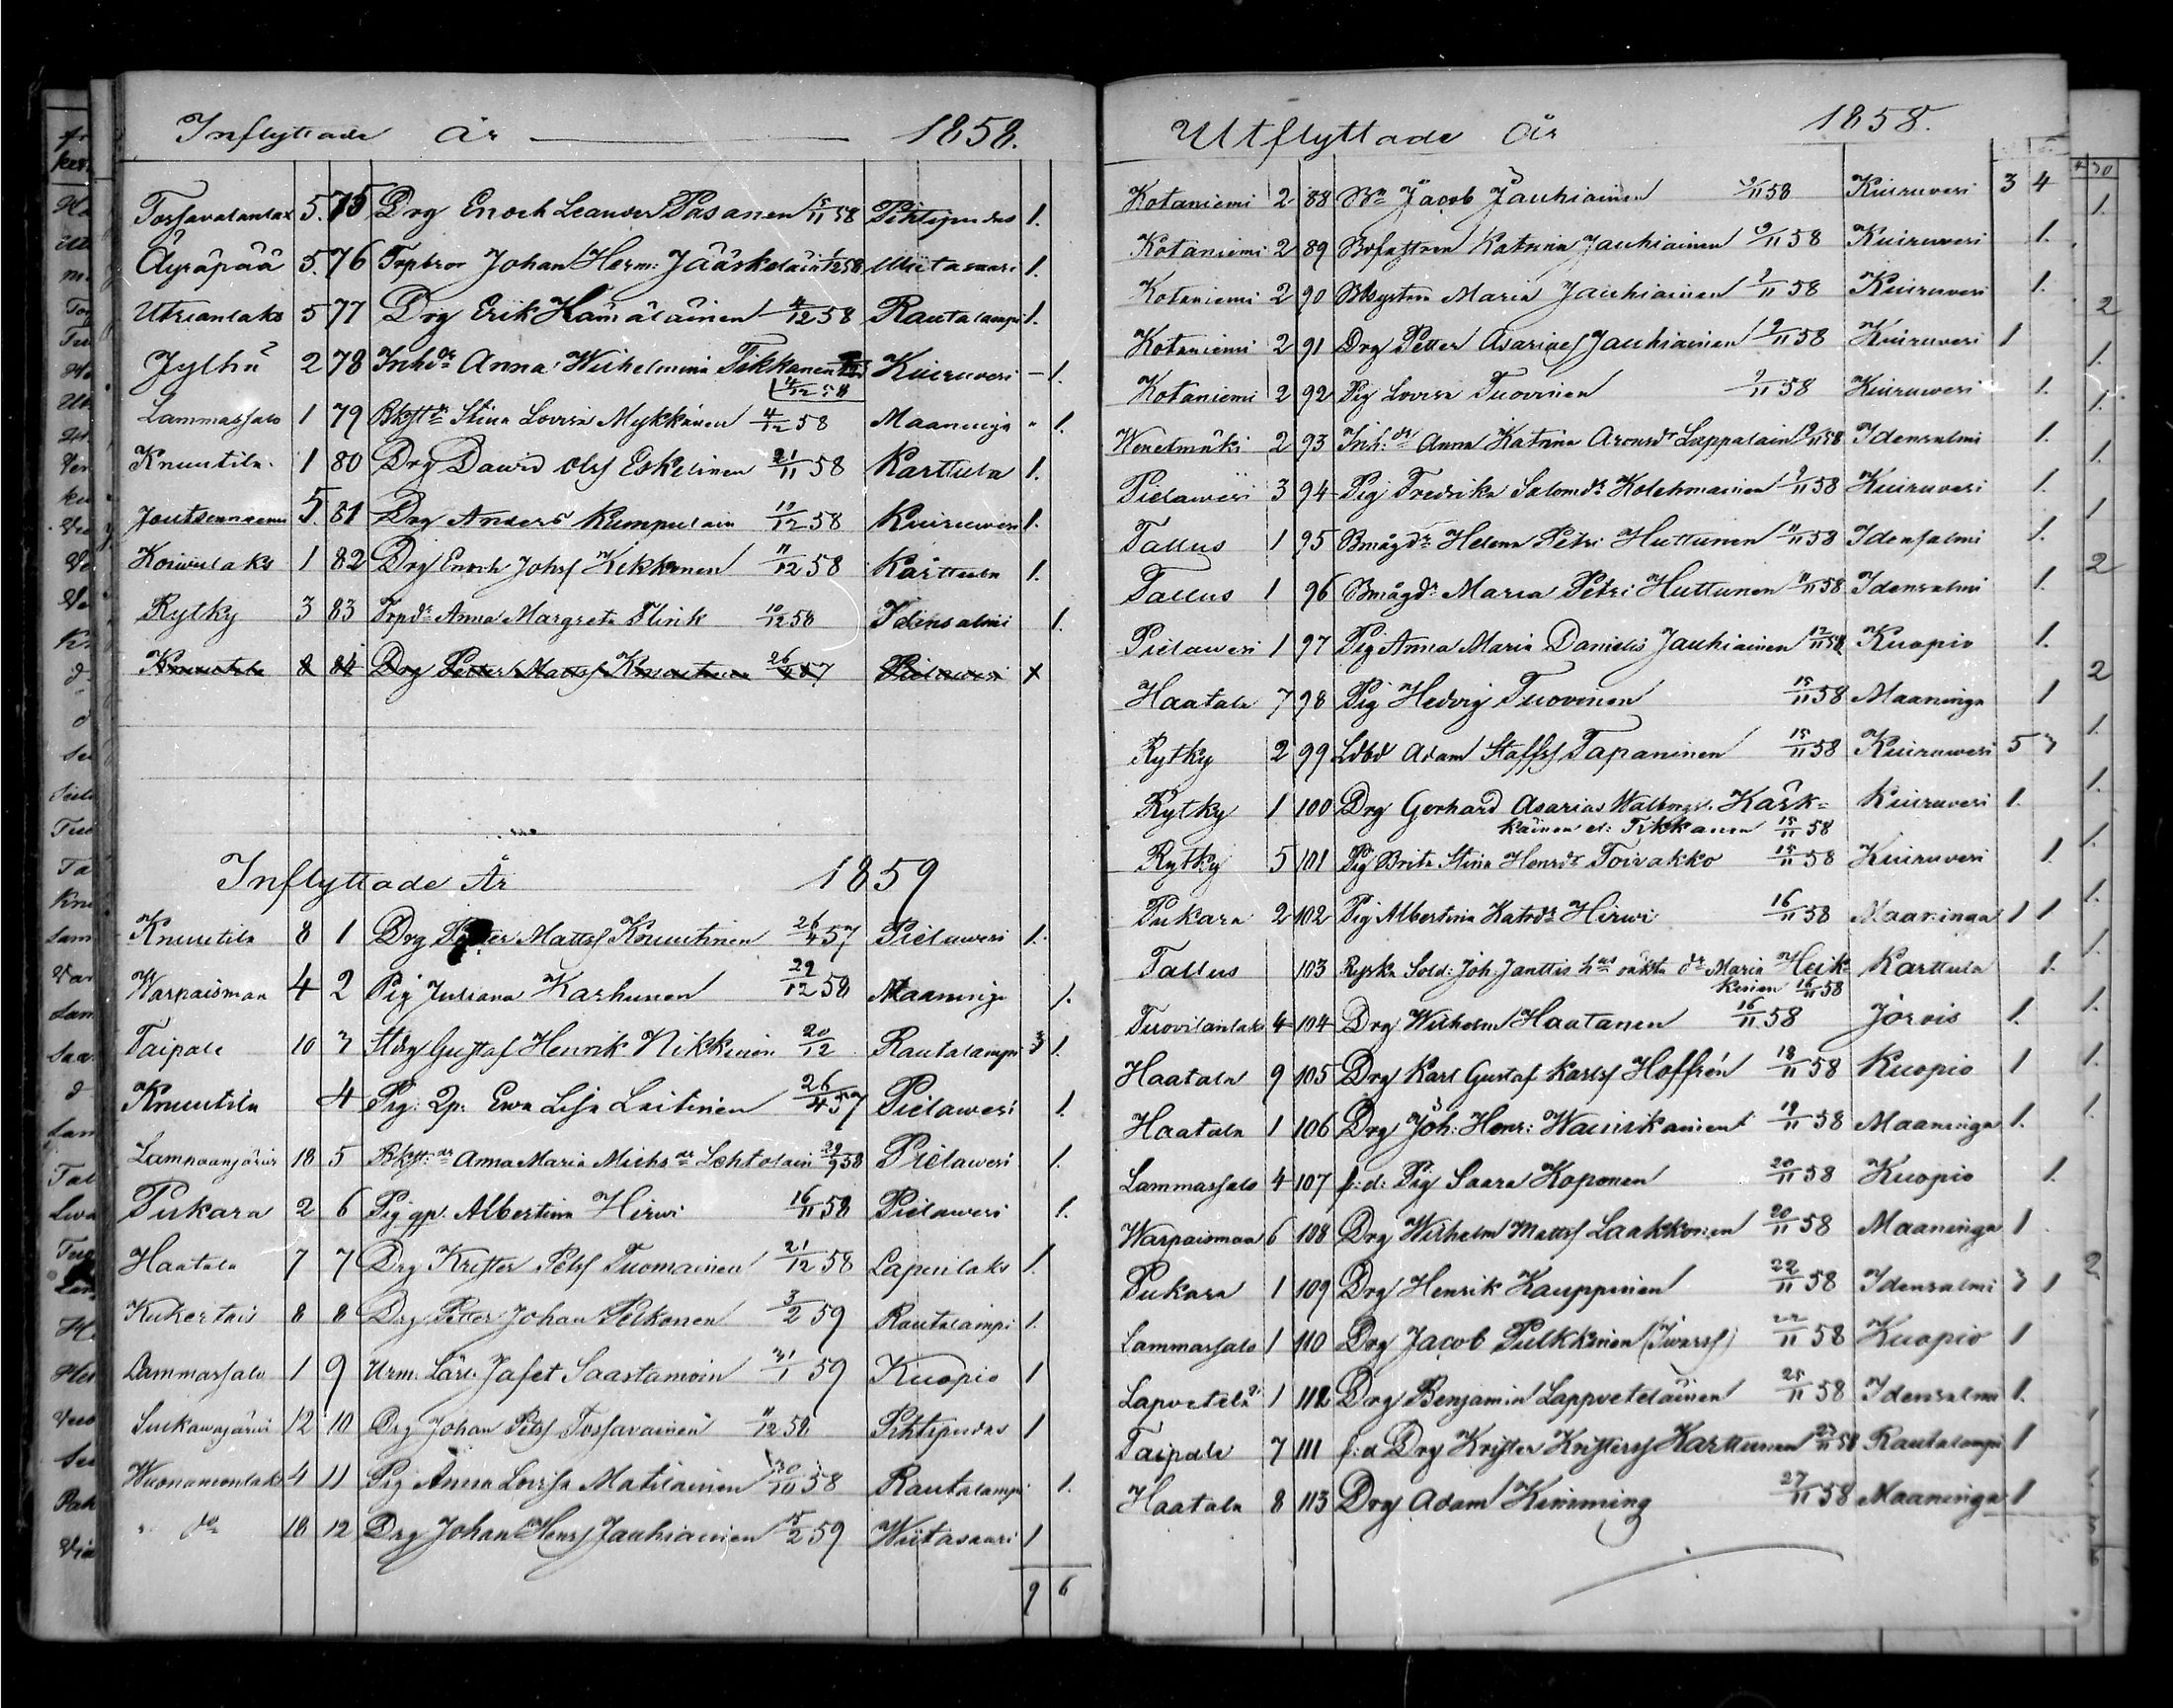 Inflyttade År 1858.
Tossavalanlax 5. 75 Drg Enoch Leander Pasanen 5/11 58 Pihtipudas 1.
Äyräpää 5. 76 Torpbror Johan Herm: Jääskeläin 1/12 58 Wiitasaari 1.
Utrianlaks 5 77 Drg Erik Hämäläinen 4/12 58 Rautalampi 1.
Jylhä 2 78 Inhdr Anna Wilhelmina Tikkanen Kiuruvesi - 1.
4/12 58
Lammassalo 1 79 Stina Lovisa Mykkänen 4/12 58 Maaninga " 1.
Knuutila 1 80 Drg David Olss Eskelinen 21/11 58 Karttula 1.
Joutsenniemi 5. 81 Drg Anders Kumpulain 10/12 58 Kiuruvesi 1.
Koivulaks 1 82 Drg Enoch Johss Kekkonen 11/12 58 Karttula 1.
Rytky 3 83 Torpdr Anna Margreta Flink 10/12 58 Idensalmi 1.
Knuutila 8 84 Drg Petter Mattss Knuutinen 26/4 57 Pielavesi 1
Inflyttade År 1859
Knuutila 8 1 Drg Petter Mattss Knuutinen 26/4 57 Pielavesi 1.
Warpaismaa 4 2 Pig Juliana Karhunen 29/12 58 Maaninga 1.
Taipale 10 3 Gustaf Henrik Nikkinen 20/12 Rautalampi 3 1.
Knuutila 4 Pig: Qp: Ewa Lisa Laitinen 26/4 57 Pielavesi 1.
Lampaanjärvi 18 5 Anna Maria Michsdr Lehtolain 29/9 58 Pielavesi 1.
Pukara 2 6 Pig qp. Albertina Hirvi 16/11 58 Pielavesi 1.
Haatala 7 7 Drg Krister Petss Tuomainen 21/12 58 Lapinlaks 1.
Kukertais 8 8 Drg Petter Johan Pelkonen 3/2 59 Rautalampi 1.
Lammassalo 1 9 Urm. Lärl. Jafet Saastamoin 31/1 59 Kuopio 1
Sulkavajärvi 12 10 Drg Johan Petss Tossavainen 11/12 58 Pihtipudas 1
Wuonamonlaks 4 11 Pig Anna Lovisa Matilainen 30/10 58 Rautalampi 1.
" do 18 12 Drg Johan Henss Jauhiainen 15/2 59 Wiitasaari 1
9 6
Utflyttade År 1858.
Kotaniemi 2 88 Bn Jacob Jauhiainen 9/11 58 Kiuruvesi 3 4
Kotaniemi 2 89 Katrina Jauhiainen 9/11 58 Kiuruvesi 1.
Kotaniemi 2 90 Maria Jauhiainen 9/11 58 Kiuruvesi 1.
Kotaniemi 2 91 Drg Petter Asarias Jauhiainen 9/11 58 Kiuruvesi 1
Kotaniemi 2 92 Pig Lovisa Tuovinen 9/11 58 Kiuruvesi 1.
Wenetmäki 2 93 Inh:dr Anna Katrina Aronsdr Lappalain 9/11 58 Idensalmi 1.
Pielavesi 3 94 Pig Fredrika Salomdr Kolehmainen 9/11 58 Kiuruvesi 1.
Tallus 1 95 Bmågdr Helena Petri Huttunen 11/11 58 Idensalmi 1.
Tallus 1 96 Bmågdr Maria Petri Huttunen 11/11 58 Idensalmi 1.
Pielavesi 1 97 Pig Anna Maria Danielis Jauhiainen 12/11 58 Kuopio 1.
Haatala 7 98 Pig Hedvig Tuovinen 15/11 58 Maaninga 1
Rytky 2 99 Ldbd Adam Staffss Tapaninen 15/11 58 Kiuruvesi 5 3
Rytky 1 100 Drg Gerhard Asarias Walborgs. Kärk= Kiuruvesi 1.
käinen el: Tikkanen 15/11 58
Rytky 5 101 Pig Brita Stina Hensdr Toivakko 15/11 58 Kiuruvesi 1.
Pukara 2 102 Pig Albertina Katrdr Hirvi 16/11 58 Maaninga 1 1
Tallus 103 Ryska Sold: Joh. Janttis hus oäkta dr Maria Heik= Karttula 1.
kinen 16/11 58
Tuovilanlaks 4 104 Drg Wilhelm Haatanen 16/11 58 Jorois 1.
Haatala 9 105 Drg Karl Gustaf Karlss Hoffrén 18/11 58 Kuopio 1
Haatala 1 106 Drg Joh: Henr: Wainikainen 19/11 58 Maaninga 1.
Lammassalo 4 107 f:d: Pig Saara Koponen 20/11 58 Kuopio 1.
Warpaismaa 6 108 Drg Wilhelm Mattss Laakkonen 20/11 58 Maaninga 1
Pukara 1 109 Drg Henrik Kauppinen 22/11 58 Idensalmi 3 1
Lammassalo 1 110 Drg Jacob Pulkkinen (Iwarss) 22/11 58 Kuopio 1
Lapvetelä 1 112 Drg Benjamin Lappveteläinen 25/11 58 Idensalmi 1.
Taipale 7 111 f:d Drg Krister Kristerss Karttunen 23/11 58 Rautalampi 1
Haatala 8 113 Drg Adam Kimming 27/11 58 Maaninga 1